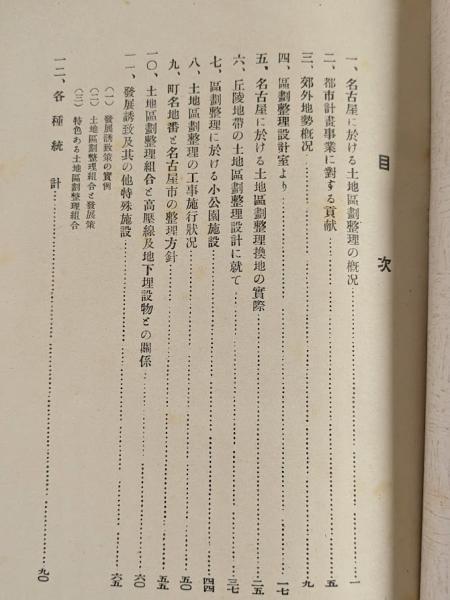 目次
一、名古屋に於ける土地區劃整理の概况……一
二、都市計畫事業に對する貢献……五
三、郊外地勢概况……九
四、區劃整理設計室より……一七
五、名古屋に於ける土地區劃整理換地の實際……二五
六、丘陵地帶の土地區劃整理設計に就て……三七
七、區劃整理に於ける小公園施設……四四
八、土地區劃整理の工事施行狀况……五〇
九、町名地番と名古屋市の整理方針……五五
一〇、土地區劃整理組合と高壓線及地下埋設物との關係……六〇
一一、發展誘致及其の他特殊施設……六五
(一) 發展誘致策の實例
(二) 土地區劃整理組合と發展策
(三) 特色ある土地區劃整理組合
一二、各種統計……九〇